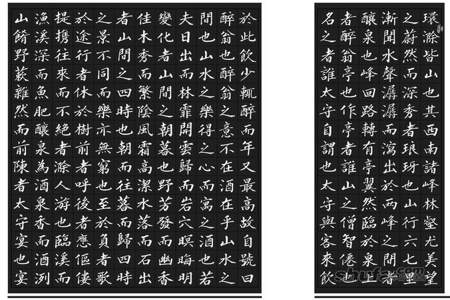 環滁皆山也其西南諸峰林壑尤美望
之蔚然而深秀者琅玡也山行六七里
漸聞水聲潺潺而瀉出於兩峰之間者
釀泉也峰回路轉有亭翼然臨於泉上
者醉翁亭也作亭者誰山之僧智僊也
名之者誰太守自謂也太守與客來飲
於此飲少輒醉而年又最高故自號曰
醉翁也醉翁之意不在酒在乎山水之
間也山水之樂得之心而寓之酒也若
夫日出而林霏開雲歸而岩穴暝晦明
變化者山間之朝暮也野芳發而幽香
佳木秀而繁陰風霜高潔水落而石出
者山間之四時也朝而往暮而歸四時
之景不同而樂亦無窮也至於負者歌
於途行者休於樹前者呼後者應傴僂
提攜往來而不絕者滁人游也臨溪而
漁溪深而魚肥釀泉為酒泉香而酒洌
山餚野蔌雜然而前陳者太守宴也宴